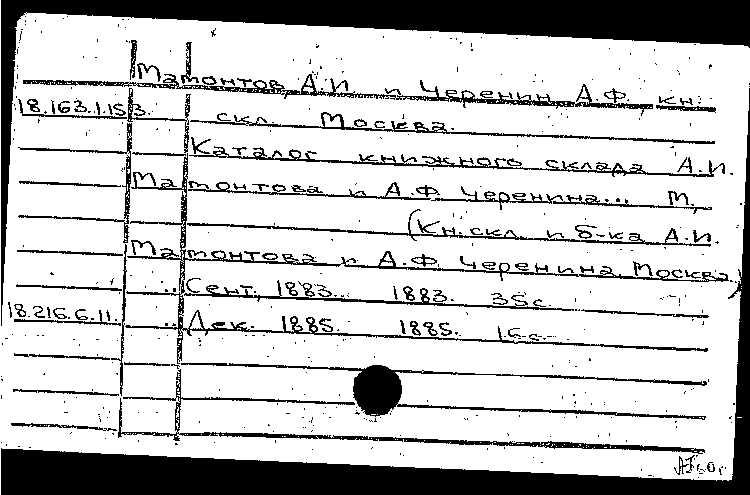 Мамонтов, А.И. и Черенин, А.Ф. кн.
18.163.1.153. скл. Москва.
Каталог книжного склада А.И.
Мамонтова и А.Ф. Черенина... М,
(Кн. скл. и б-ка А.И.
Мамонтова и А.Ф. Черенина. Москва)
.. Сент. 1883. 1883. 35с.
18.216.6.11. .. Дек. 1885. 1885. 16с.